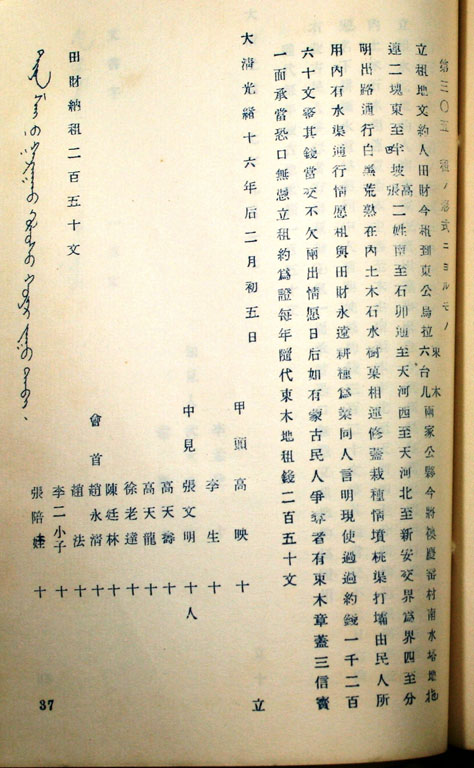 第三〇五 租ノ書式ニヨルモノ
立租地文約人田財今租到東公烏拉六台兒東木兩家公縣今將後慶畨村南水塔地
連二塊東至牢坡高張二姓南至石卯道至天河西至天河北至新安交界爲界四至分
明出路通行白黑荒熟在內土木石水樹菓相連修葢栽種情墳桃渠打壩由民人所
用內石水渠通行情愿租與田財永遠耕種爲業同人言明現使過過約錢一千二百
六十文整其錢當交不欠兩出情愿日后如有蒙古民人爭奪者有東木章蓋三信賓
一面承當恐口無憑立租約爲證每年隨代東木地租錢二百五十文
大清光緒十六年后二月初五日 立
甲頭高 映 十
李 生 十
中見張文明 十 人
高天壽 十
高天龍 十
徐老達 十
陳廷林 十
會首趙永清 十
趙 法 十
李二小子 十
張陪娃 十
田財納租二百五十文
37